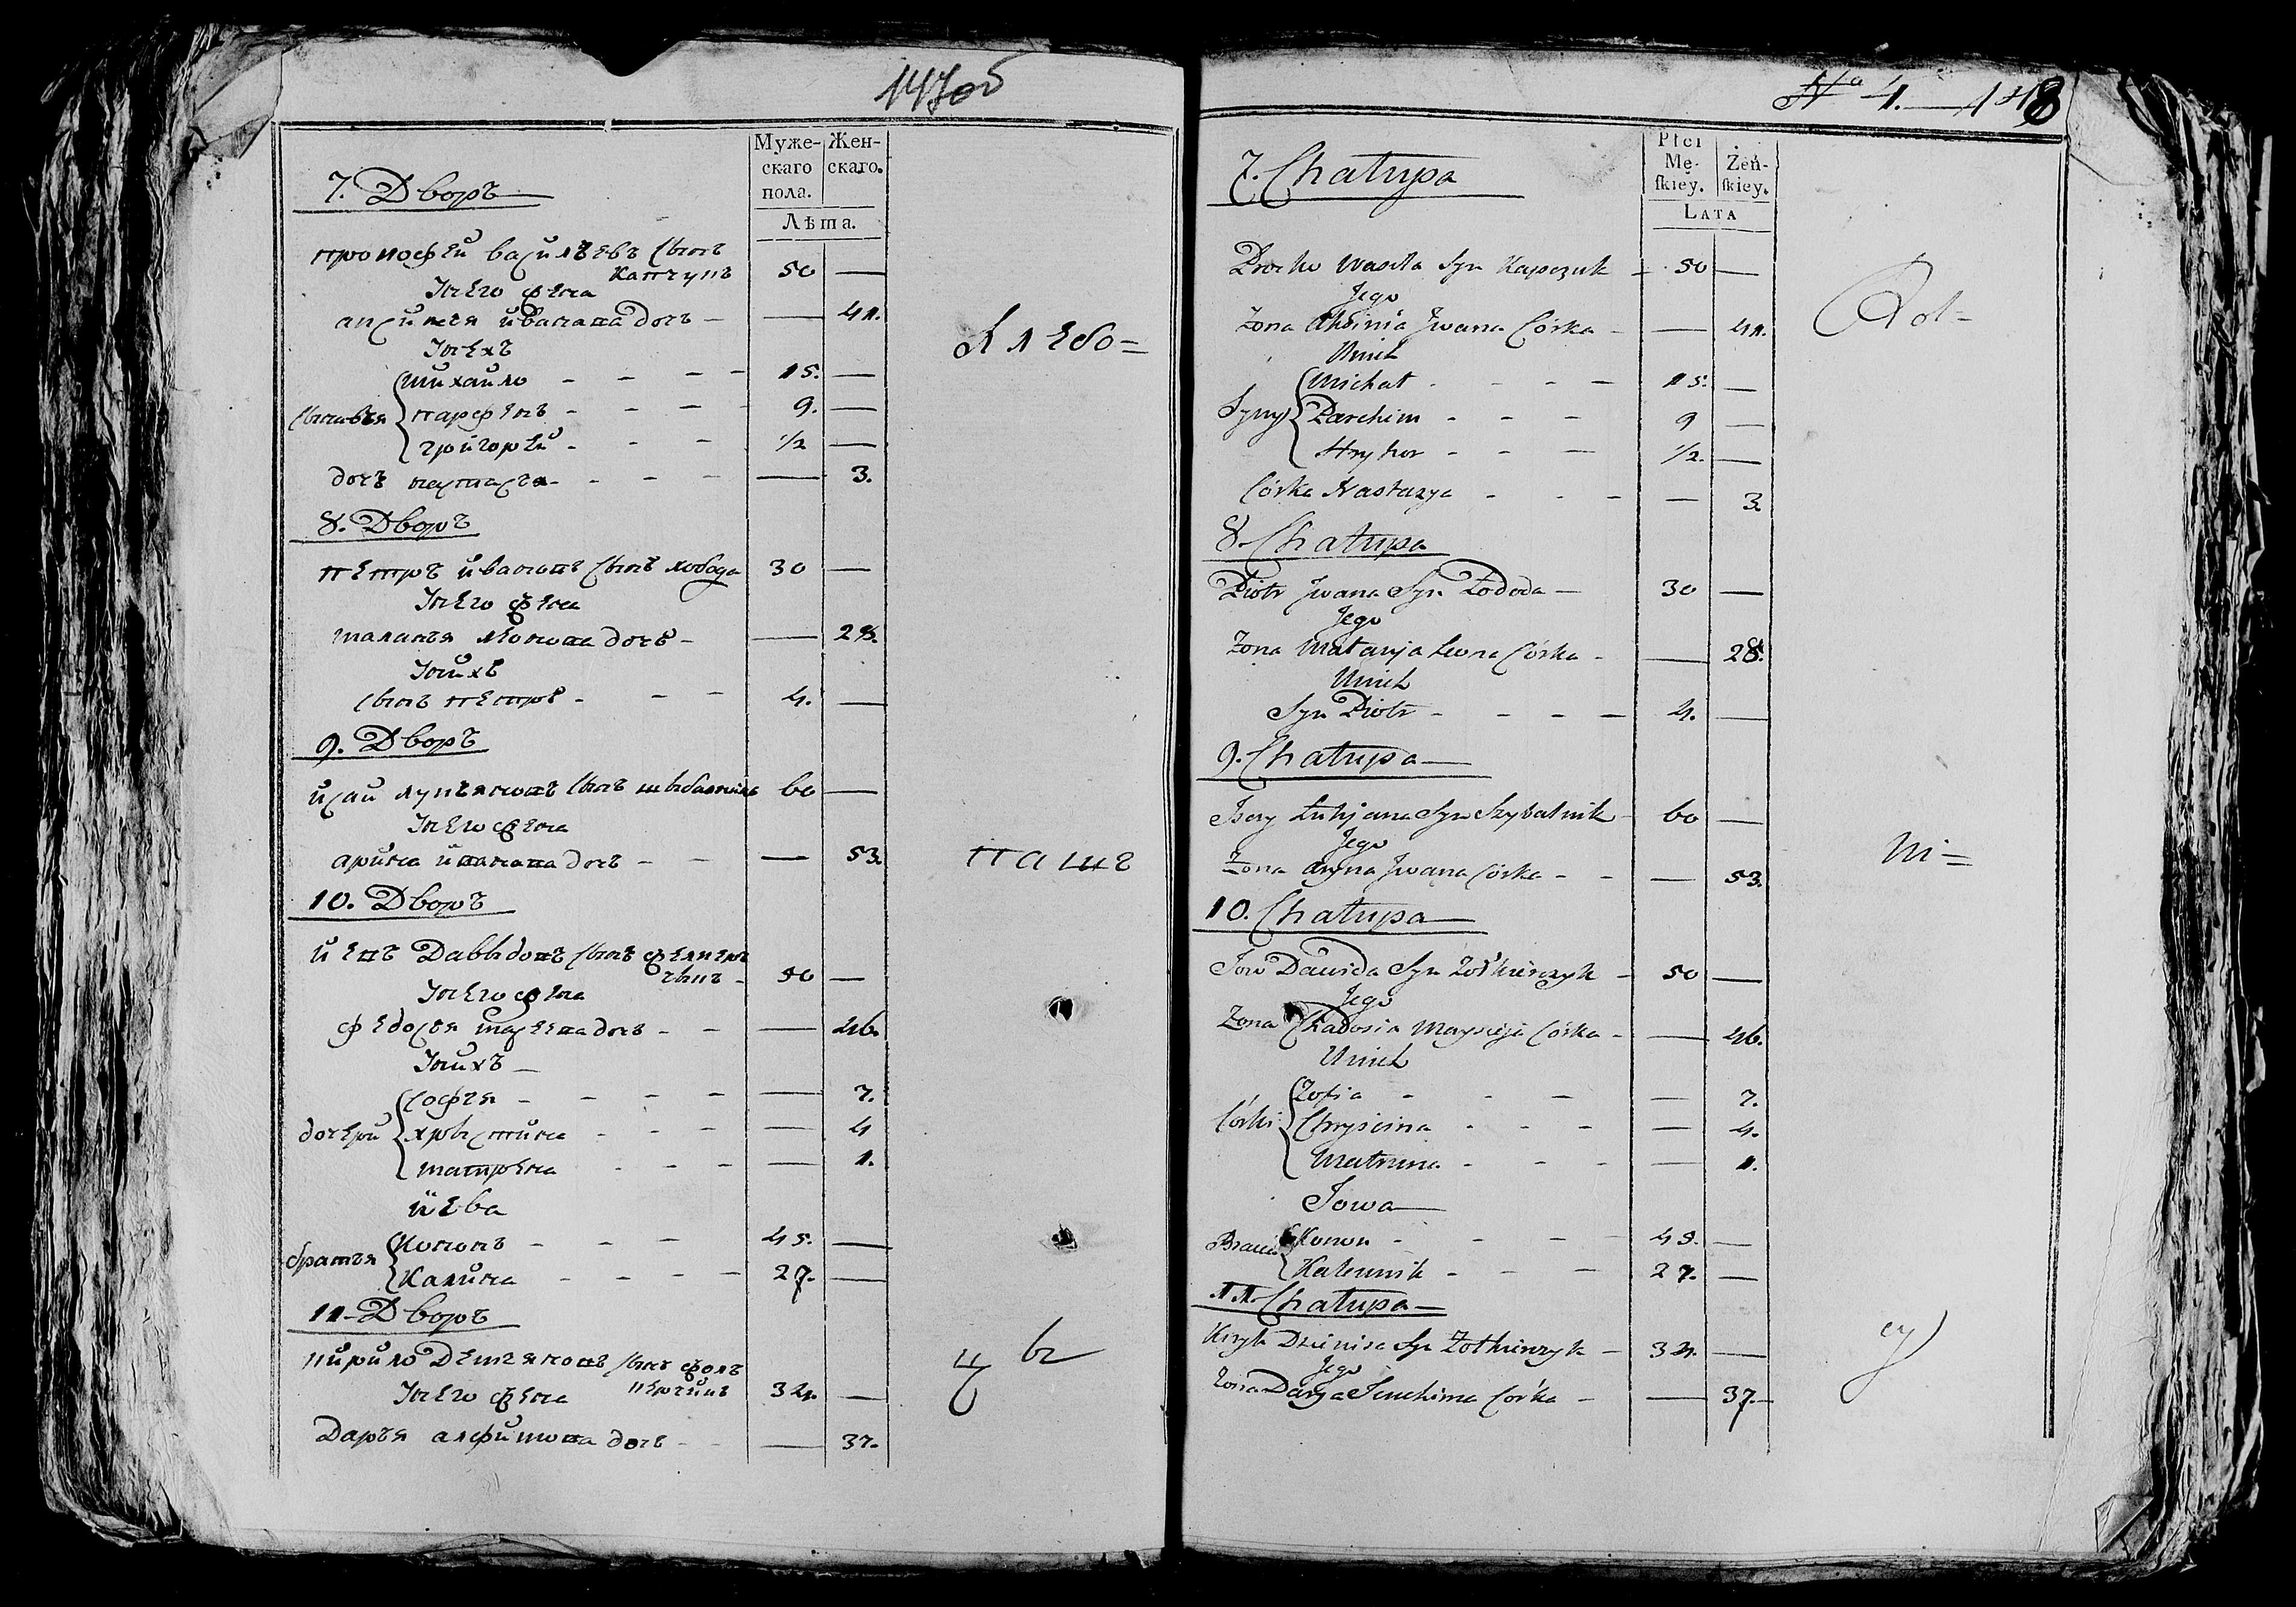 147об
Муже-
скаго
пола.
Жен-
скаго.
Лѣта.
7. Дворъ
прокофей васильевъ сынъ
капчукъ 50 —
У него жена
аксинья иванова дочь — — 41.
У нехъ
сыновья
михайло - - - - 15. —
парфенъ - - - 9. —
григорей - - - 1/2 —
дочъ настасья - - - — 3.
8. Дворъ
петръ ивановъ сынъ лобода 30 —
У него жена
маланья леонова дочъ - — 28.
У нихъ
сынъ петръ - - - 4. —
9. Дворъ
исай лукьяновъ сынъ шибалникъ 60 —
У него жена
арина иванова дочъ - - — 53.
10. Дворъ
иевъ Давыдовъ сынъ
50 —
У него жена
федосья дочъ - - — 46.
У нихъ —
дочери
софья - - - - — 7.
хрыстина - - - — 4
матрена - - - — 1.
иева
братья
кононъ - - - 45. —
калина - - - - 27. —
11. Дворъ
кирило сынъ
У него жена 34. —
Дарья дочъ - - — 37.
хлебо=
паш
цы
No 4. — 148
Płci
Mę-
skiey.
Żeń-
skiey.
LATA
7. Chałupa
Procko Wasila Syn Kapczuk - 50 —
Jego
Żona Axinia Jwana Córka - — 41.
U nich
Syny
Michał - - - — 15. —
Parchim - - - 9 —
Hryhor - - — 1/2. —
Córka Nastazya - - - — 3.
8. Chałupa
Piotr Jwana Syn Łoboda — 30 —
Jego
Żona Małanja Leona Córka - — 28.
U nich
Syn Piotr - - - — 4. —
9. Chałupa
Jsay Łukjana Syn Szybalnik - 60 —
Jego
Żona Aryna Jwana Córka - - — 53.
10. Chałupa
Jow Dawida Syn Żołkiewczyk - 50 —
Jego
Żona Chadosia Córka - — 46.
U nich
Córki
Zofia - - - — 7.
Chryścina - - - — 4.
Matruna - - - — 1.
Jowa
Bracia
Konon - - - - 45. —
Kalennik - - - 27. —
11. Chałupa
Kiryk Syn Żołkiewczyk - 34. —
Jego
Żona Darja Córka - — 37. —
Rol=
ni=
cy